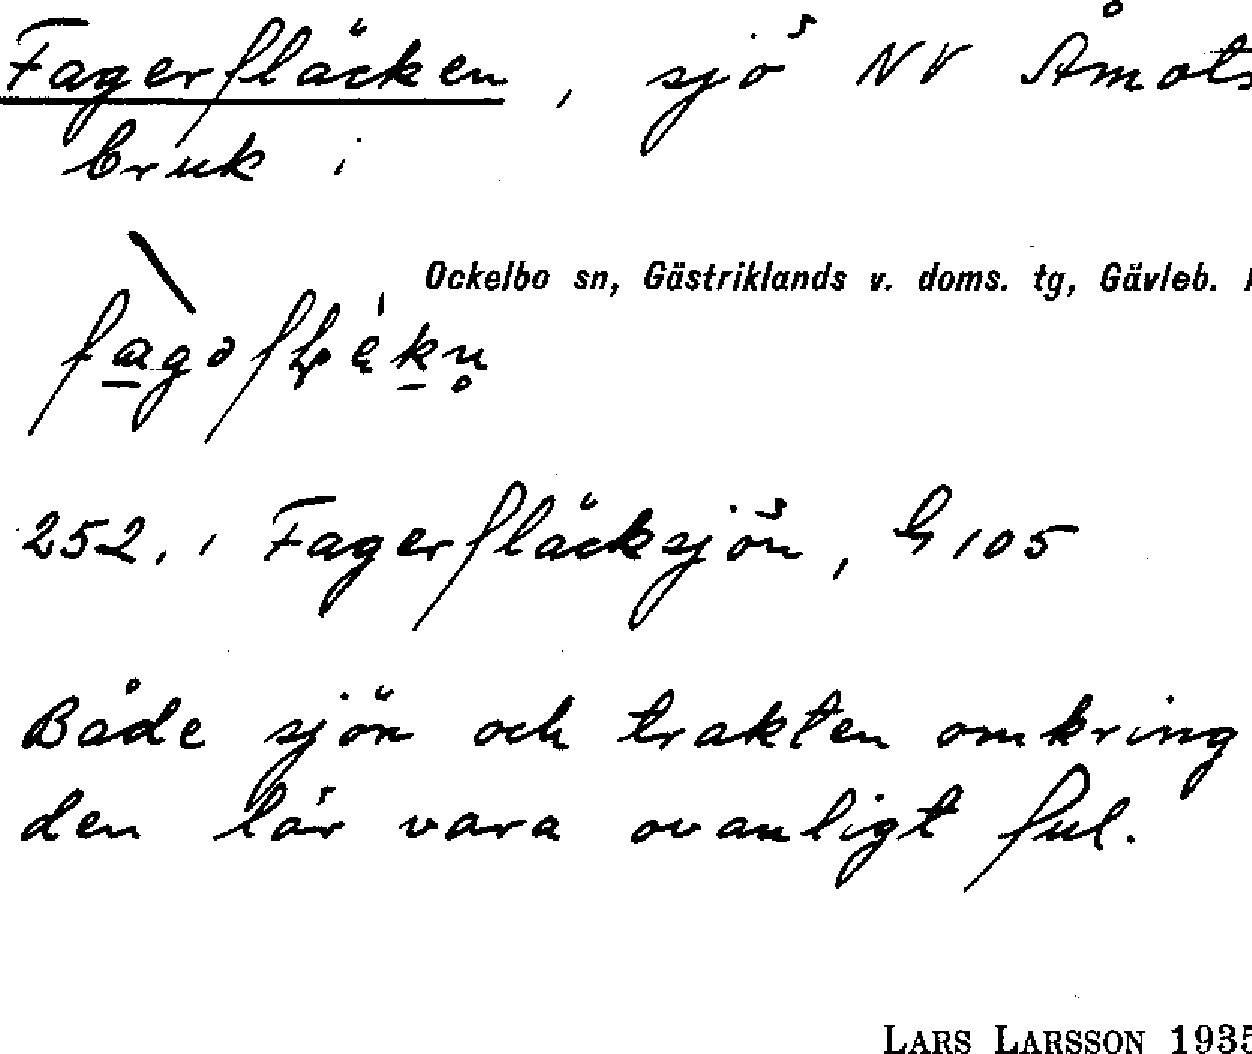 Fagerfläcken, sjö NV Åmots
bruk i
Ockelbo sn, Gästriklands v. doms. tg, Gävleb.
252. , Fagerfläcksjön, G 105
Både sjön och trakten omkring
den lär vara ovanligt ful.
LARS LARSSON 1935